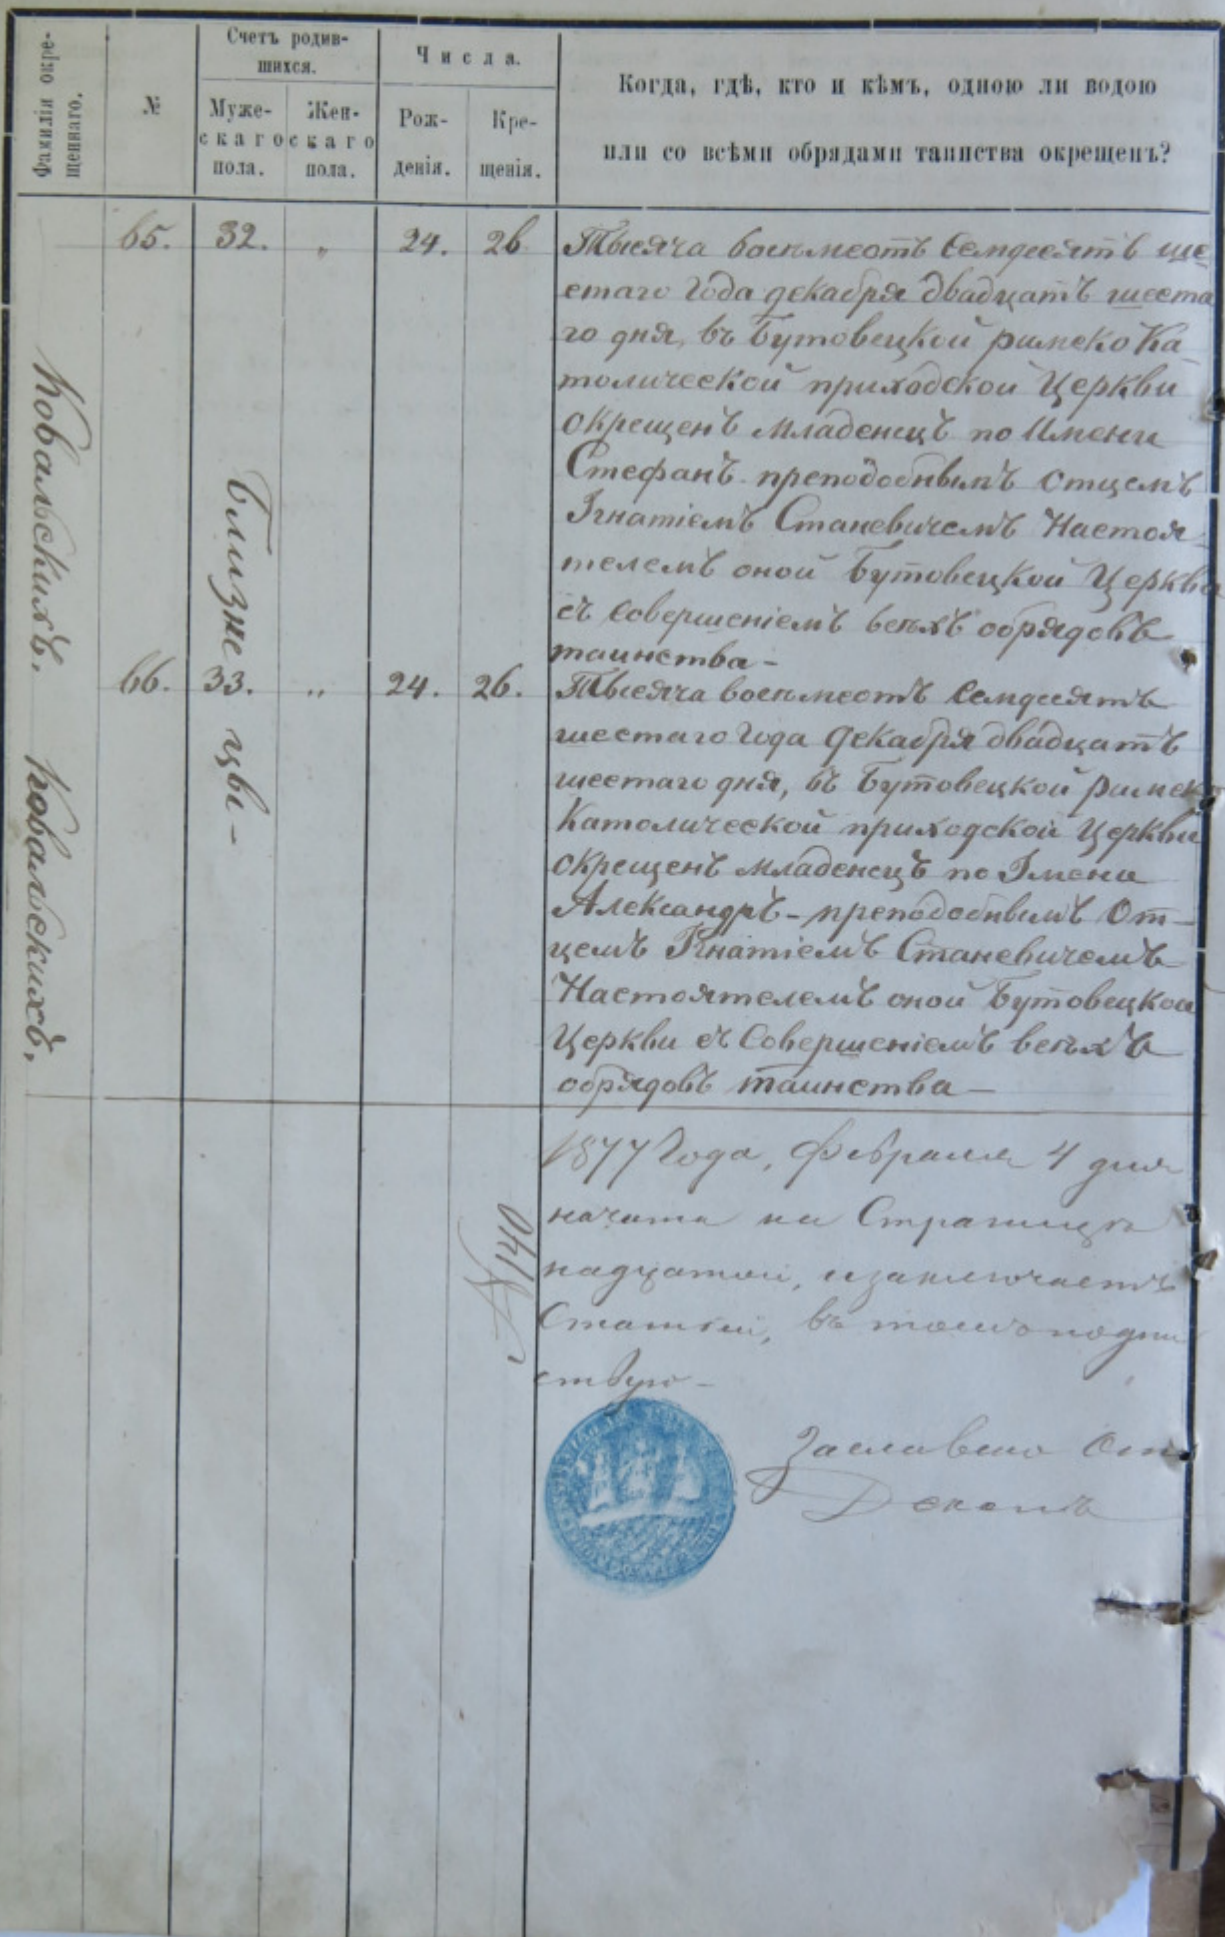 Фамиліи окре-
щеннаго.
№
Счетъ родив-
шихся.
Муже-
скаго
пола.
Жен-
скаго
пола.
Числа.
Рож-
денія.
Кре-
щенія.
Когда, гдѣ, кто и кѣмъ, одною ли водою
или со всѣми обрядами таинства окрещенъ?
Ковальскихъ.
65. 32. „ 24. 26
Тысяча восемьсотъ семдесятъ ше-
стаго года декабря двадцать шеста
го дня, въ Бутовецкой римско Ка-
толической приходской Церкви
окрещенъ младенецъ по Имени
Стефанъ преподобнымъ отцемъ
Игнатіемъ Станевичемъ Настоя-
телемъ оной Бутовецкой Церкви
съ совершеніемъ всѣхъ обрядовъ
таинства –
Близне
цы –
Ковальскихъ.
66. 33. „ 24. 26.
Тысяча восемьсотъ семдесятъ
шестаго года декабря двадцать
шестаго дня, въ Бутовецкой римско
Католической приходской Церкви
окрещенъ младенецъ по Імени
Александръ – преподобнымъ От-
цемъ Игнатіемъ Станевичемъ
Настоятелемъ оной Бутовецкой
Церкви съ Совершеніемъ всѣхъ
обрядовъ таинства –
1877 Года, Февраля 4 дня
начата на Страницѣ
надцатой, и заключаетъ
Статей, въ томъ
ствую –
Заславско
Деканъ